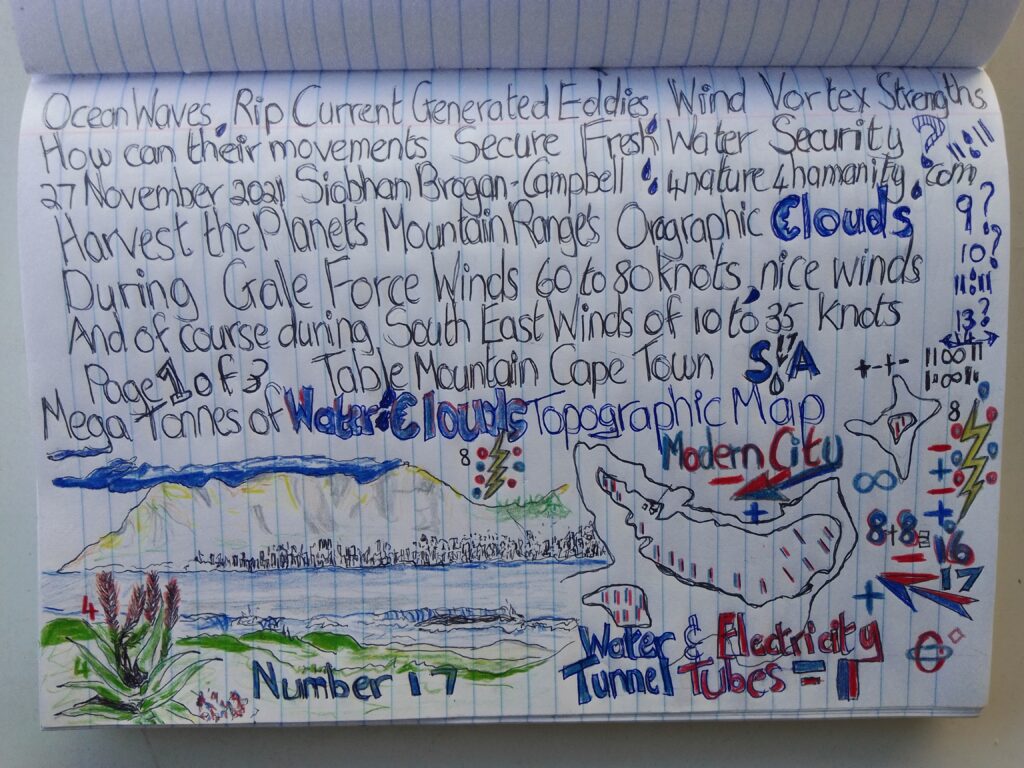 Ocean Waves, Rip Current Generated Eddies, Wind Vortex Strengths
How can their movements Secure Fresh Water Security ?
27 November 2021 Siobhan Brogan-Campbell : 4nature4hamanity.com
Harvest the Planets Mountain Ranges Orographic Clouds
9?
During Gale Force Winds 60 to 80 knots, nice winds
10?
And of course during South East Winds of 10 to 35 knots
13?
Page 1 of 3 Table Mountain Cape Town S!A
17
+-+-
110011
110011
Mega Tonnes of Water Clouds Topographic Map
8
8
Modern City
-
+
-
+
-
+
∞
8+8=16
-
17
+
4
4
Number 17
Water & Electricity
Tunnel Tubes =